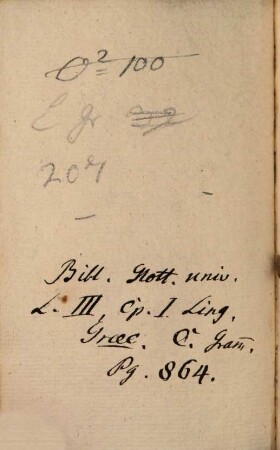 O² 100
L gr
207
Bibl. Glott. univ.
L. III, Cp. I. Ling.
Græc. C. Gram̅.
Pg. 864.